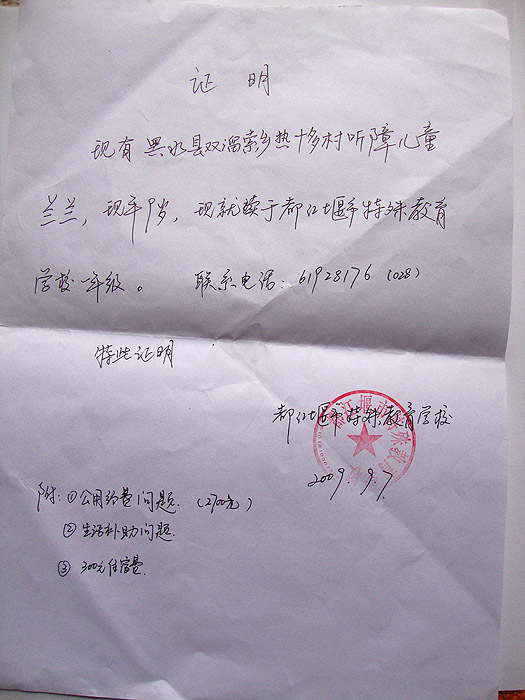 证 明
现有黑水县双溜索乡热十多村听障儿童
兰兰,现年9岁,现就读于都江堰市特殊教育
学校一年级。 联系电话:61928176 (028)
特此证明
都江堰市特殊教育学校
2009.9.7
附:①公用经费问题.(2700元)
②生活补助问题.
③300元住宿费.